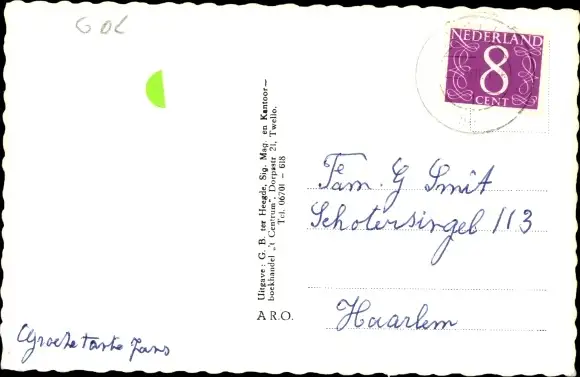 G OL
NEDERLAND
8
CENT
Uitgave: G. B. ter Heegde, Sig. Mag. en Kantoor-
boekhandel „'t Centrum", Dorpsstr 21, Twello.
Tel. 06701 - 618
A R.O.
Fam. G Smit
Schotersingel 113
Haarlem
Groeten tante Jans